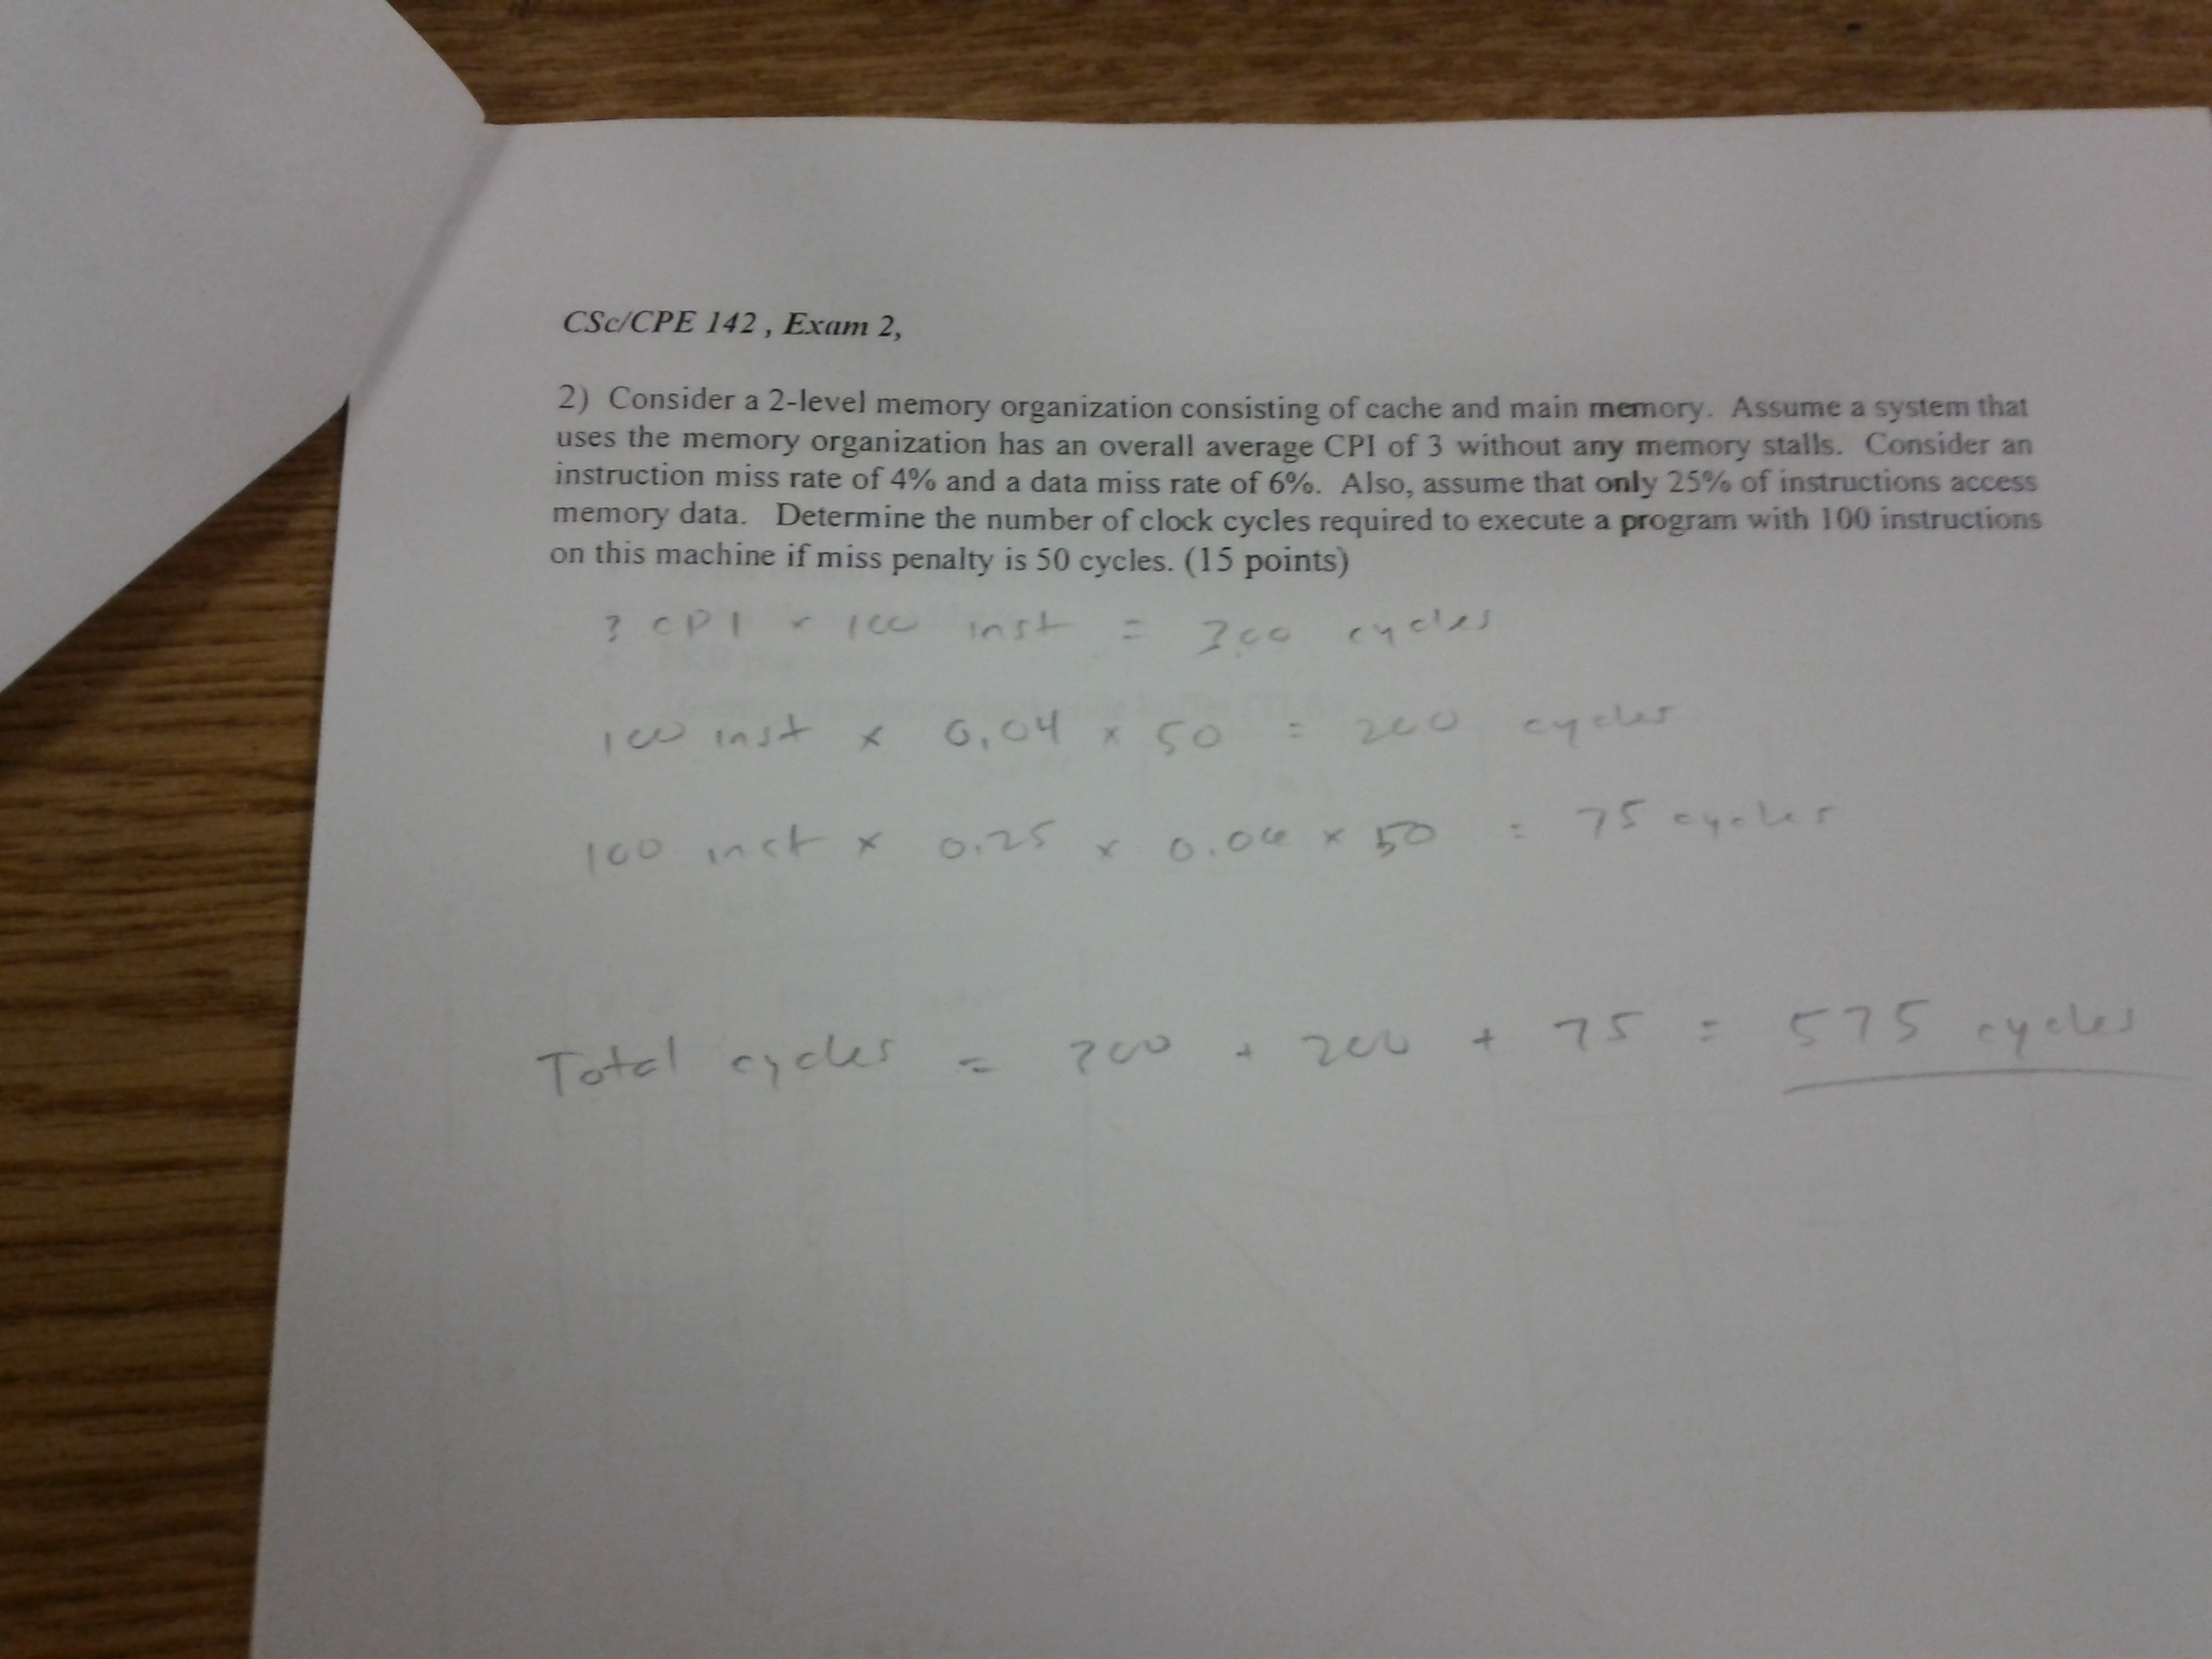 CSc/CPE 142 , Exam 2,
2) Consider a 2-level memory organization consisting of cache and main memory. Assume a system that
uses the memory organization has an overall average CPI of 3 without any memory stalls. Consider an
instruction miss rate of 4% and a data miss rate of 6%. Also, assume that only 25% of instructions access
memory data. Determine the number of clock cycles required to execute a program with 100 instructions
on this machine if miss penalty is 50 cycles. (15 points)
3 CPI x 100 inst = 300 cycles
100 inst x 0.04 x 50 = 200 cycles
100 inst x 0.25 x 0.06 x 50 = 75 cycles
Total cycles = 300 + 200 + 75 = 575 cycles